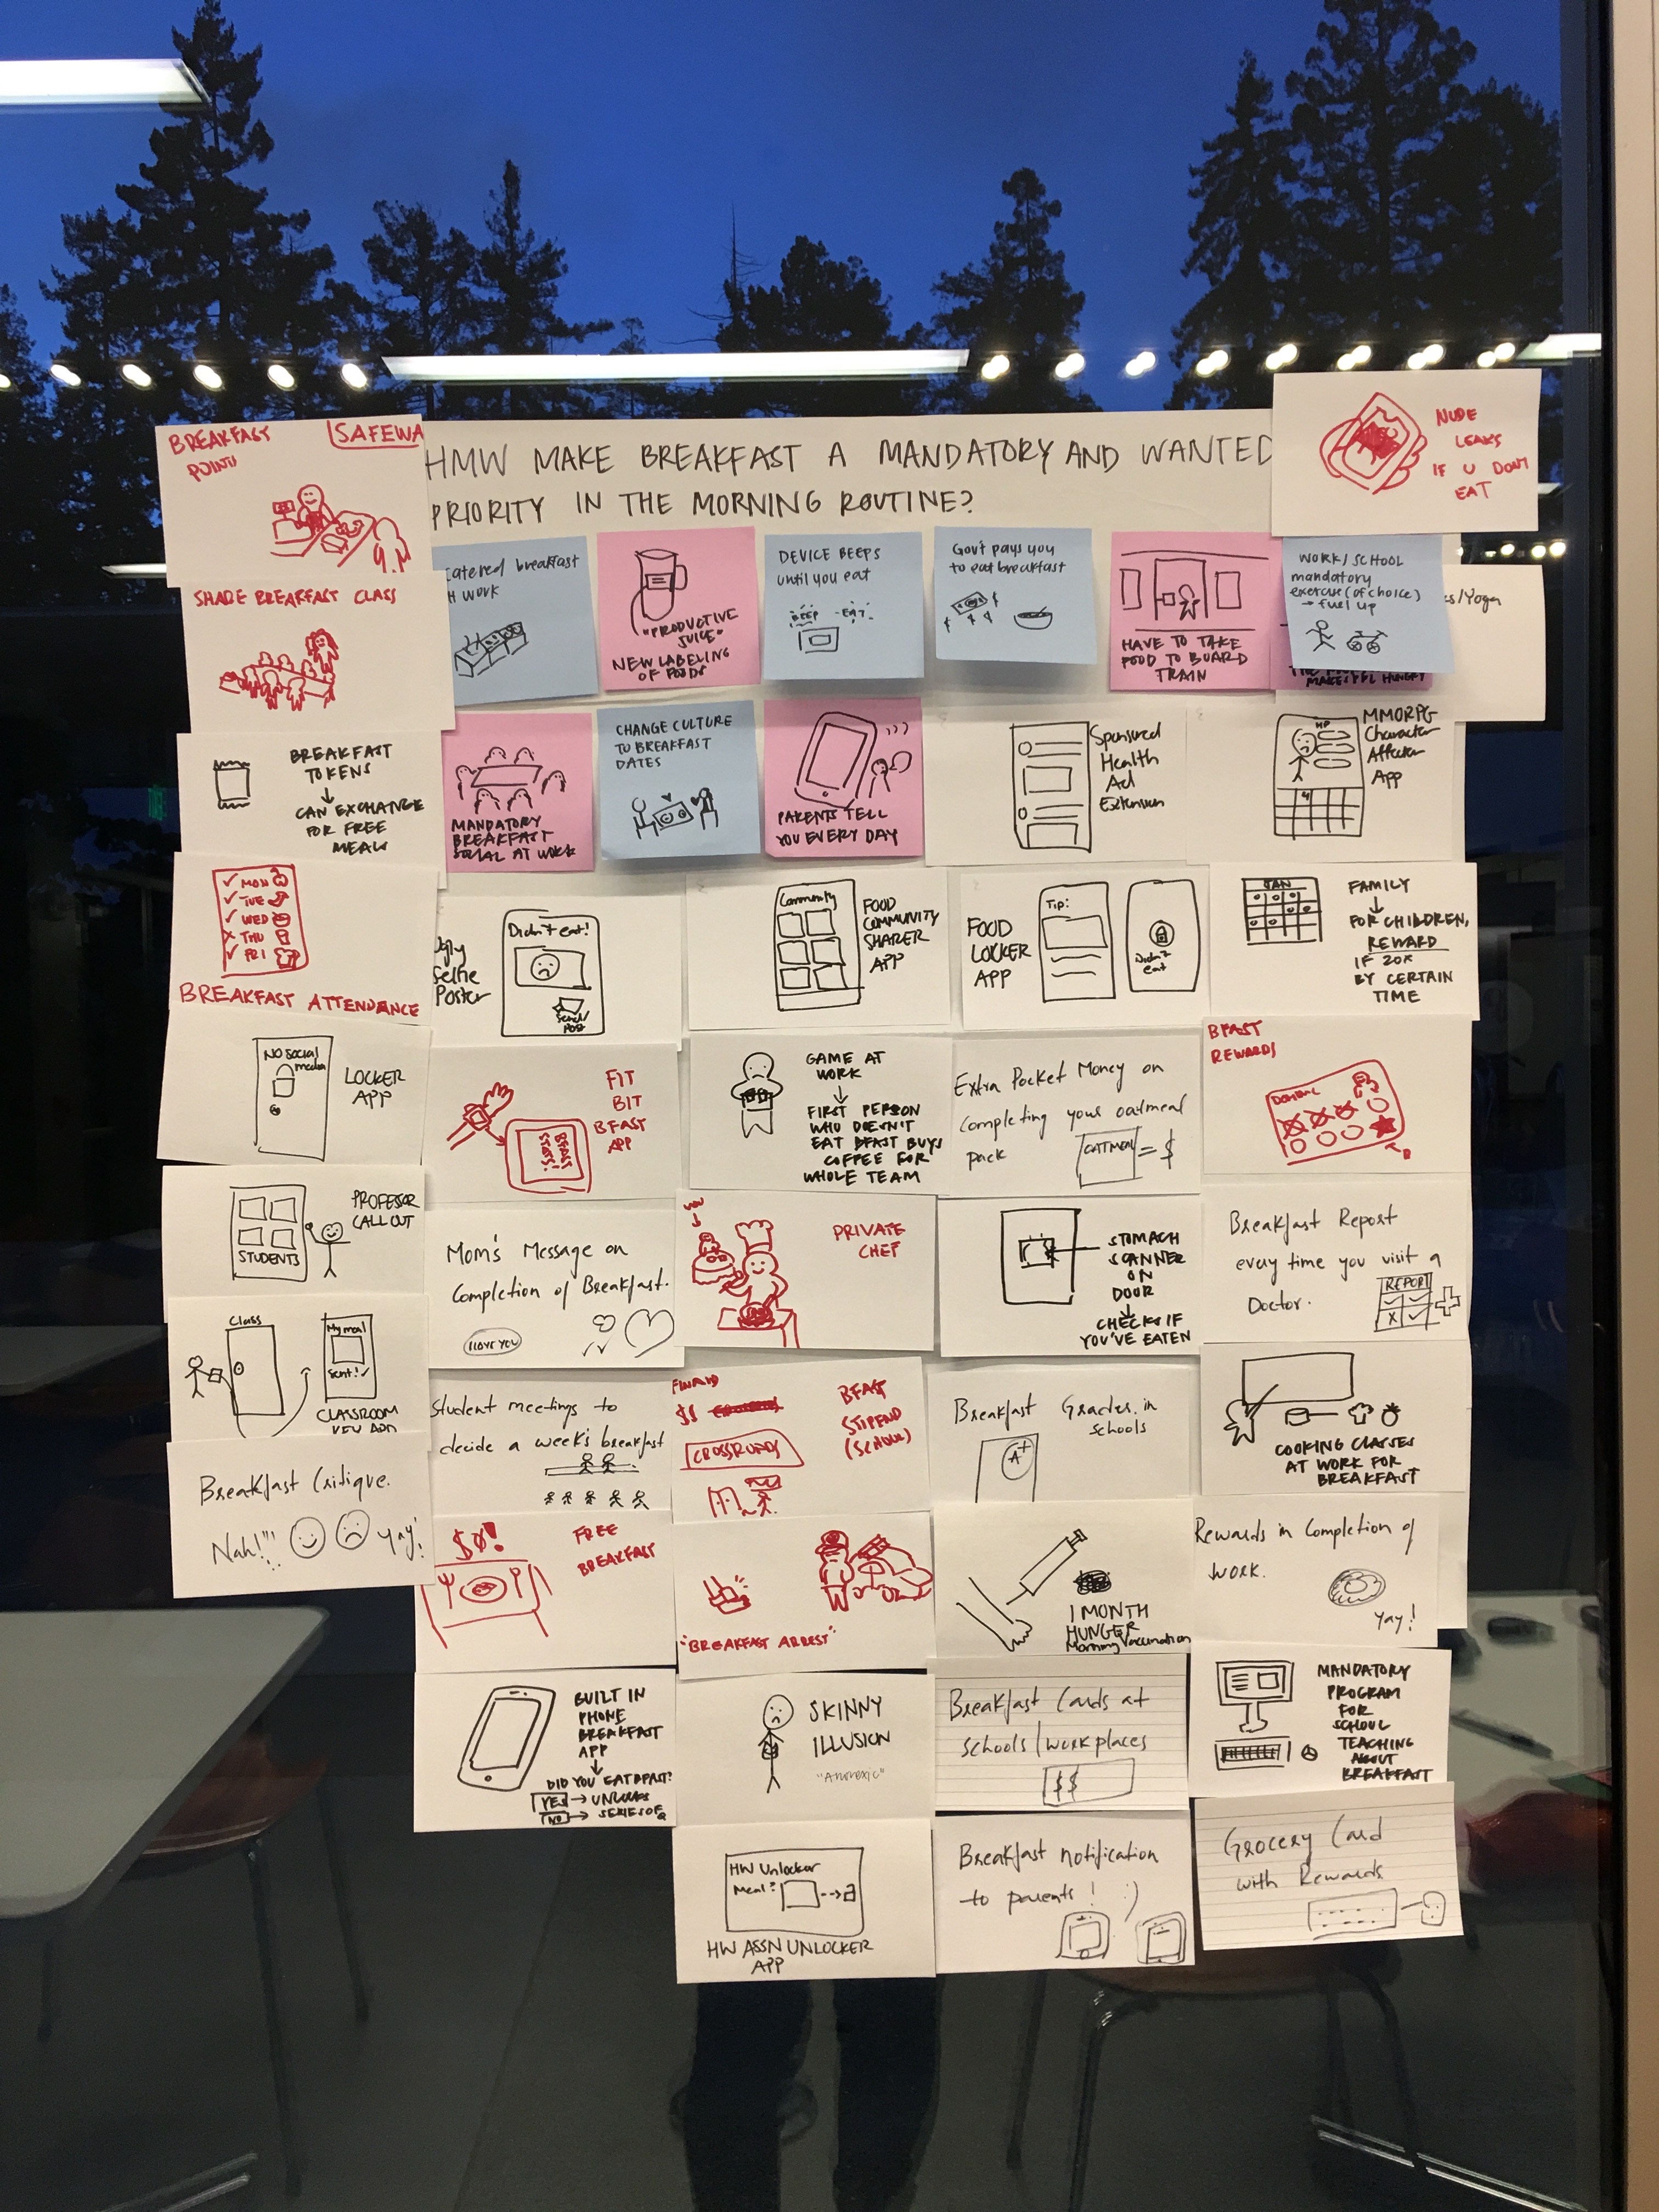 HMW MAKE BREAKFAST A MANDATORY AND WANTED
PRIORITY IN THE MORNING ROUTINE?
BREAKFAST
POINTS
SAFEWA
NUDE
LEAKS
IF U DON'T
EAT
SHARE BREAKFAST CLASS
catered breakfast
WORK
"PRODUCTIVE
JUICE"
NEW LABELING
OF FOODS
DEVICE BEEPS
until you eat
BEEP EAT
Gov't pays you
to eat breakfast
$
$ $
HAVE TO TAKE
FOOD TO BOARD
TRAIN
WORK/SCHOOL
mandatory
exercise (of choice)
→ fuel up
MAKES FEEL HUNGRY
/Yoga
BREAKFAST
TOKENS
↓
CAN EXCHANGE
FOR FREE
MEALS
MANDATORY
BREAKFAST
SOCIAL AT WORK
CHANGE CULTURE
TO BREAKFAST
DATES
PARENTS TELL
YOU EVERY DAY
Sponsored
Health
Ad
Extension
HP
MMORPG
Character
Affecter
App
✓ MON
✓ TUE
✓ WED
X THU
✓ FRI
BREAKFAST ATTENDANCE
Ugly
Selfie
Poster
Didn't eat!
Send/
Post
Community
FOOD
COMMUNITY
SHARER
APP
FOOD
LOCKER
APP
Tip:
Didn't
eat
JAN
FAMILY
↓
FOR CHILDREN,
REWARD
IF 20X
BY CERTAIN
TIME
NO social
media
LOCKER
APP
FIT
BIT
BFAST
APP
BFAST
STATS!
GAME AT
WORK
↓
FIRST PERSON
WHO DOESN'T
EAT BFAST BUYS
COFFEE FOR
WHOLE TEAM
Extra Pocket Money on
completing your oatmeal
pack
OATMEAL = $
BFAST
REWARDS
STUDENTS
PROFESSOR
CALL OUT
Mom's Message on
Completion of Breakfast.
I LOVE YOU
YOU
↓
PRIVATE
CHEF
STOMACH
SCANNER
ON
DOOR
↓
CHECKS IF
YOU'VE EATEN
Breakfast Report
every time you visit a
Doctor.
REPORT
Class
My meal
Sent! ✓
CLASSROOM
Student meetings to
decide a week's breakfast
$$
CROSSROADS
BFAST
STIPEND
(SCHOOL)
Breakfast Grades in
schools
A+
COOKING CLASSES
AT WORK FOR
BREAKFAST
Breakfast Critique.
Nah!
Yay!
$0!
FREE
BREAKFAST
"BREAKFAST ARREST"
1 MONTH
HUNGER
Morning Vaccination
Rewards in Completion of
work.
Yay!
BUILT IN
PHONE
BREAKFAST
APP
↓
DID YOU EAT BFAST?
YES → UNLOCKS
NO → SERIES OF Q
SKINNY
ILLUSION
"Anorexic"
Breakfast Cards at
schools/workplaces
$$
MANDATORY
PROGRAM
FOR
SCHOOL
TEACHING
ABOUT
BREAKFAST
HW Unlocker
Meal:
HW ASSN UNLOCKER
APP
Breakfast notification
to parents! :)
Grocery Card
with Rewards